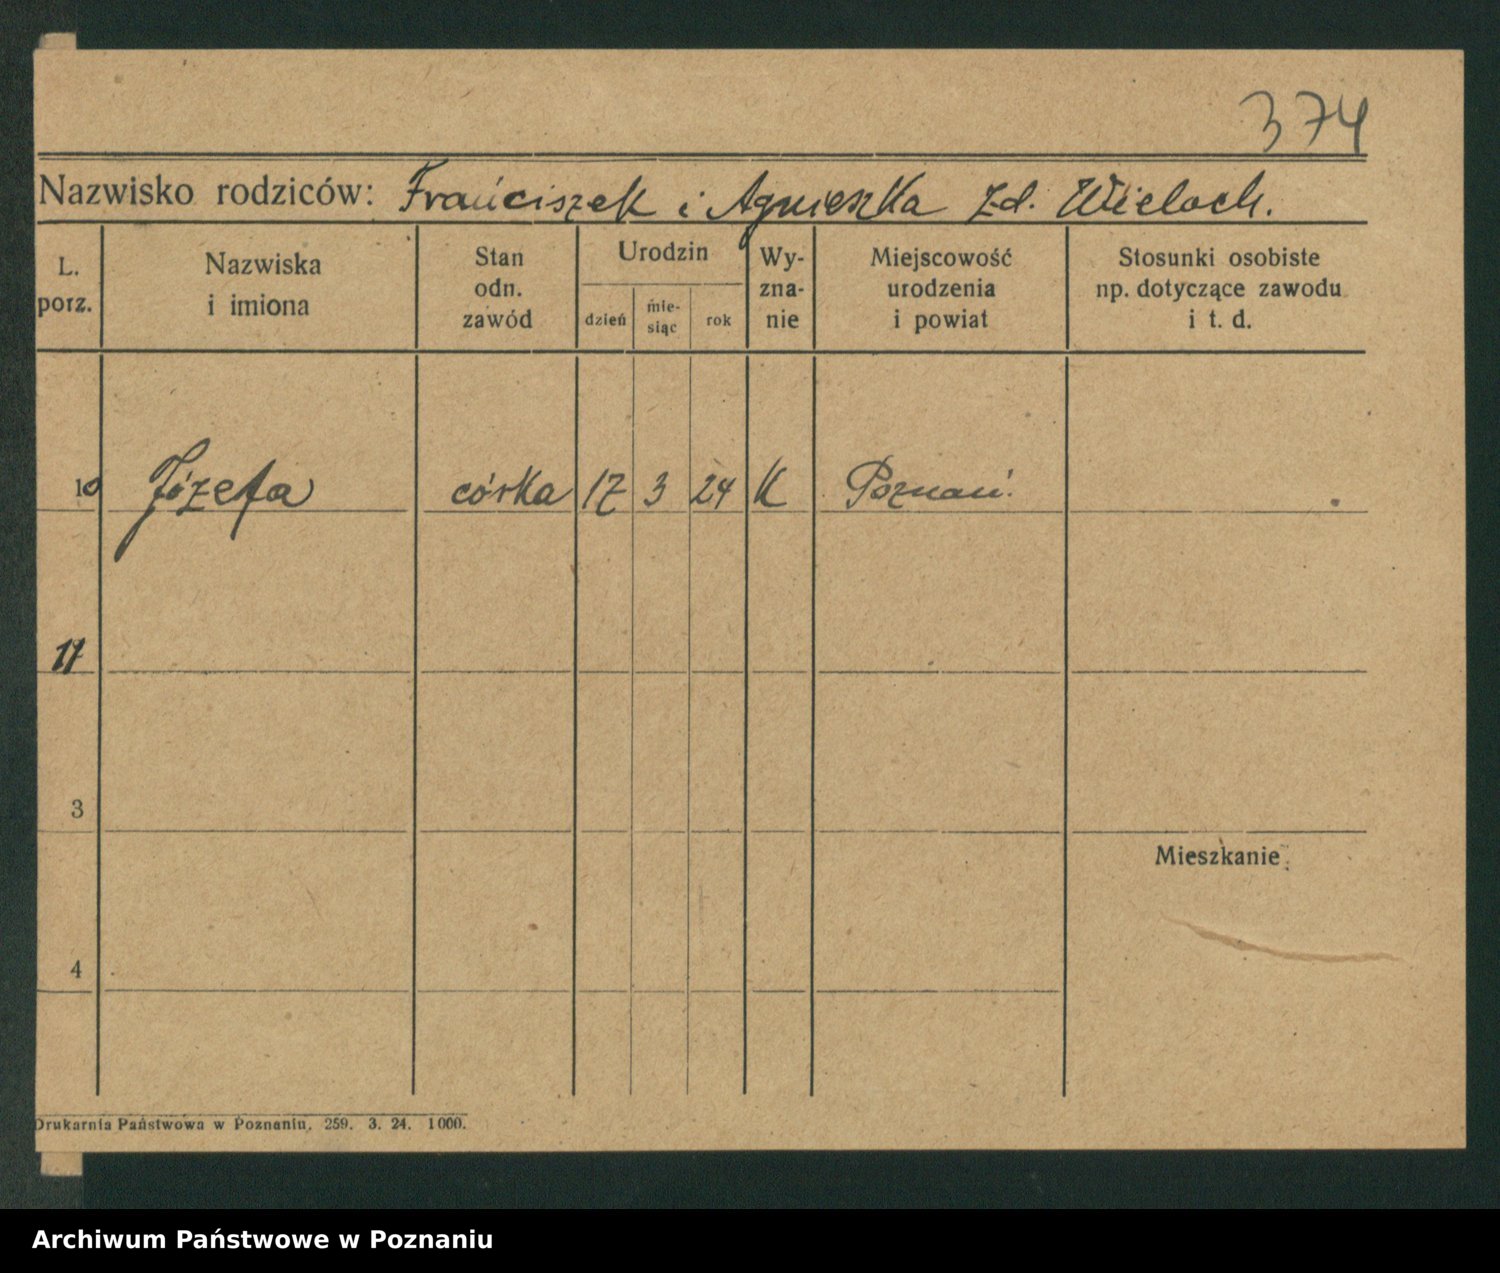 374
Nazwisko rodziców: Franciszek i Agnieszka zd. Wieloch.
L. porz.
Nazwiska i imiona
Stan odn. zawód
Urodzin
dzień
mie-siąc
rok
Wy-zna-nie
Miejscowość urodzenia i powiat
Stosunki osobiste np. dotyczące zawodu i t. d.
10 Józefa córka 17 3 24 K Poznań.
11
3
Mieszkanie
4
Drukarnia Państwowa w Poznaniu. 259. 3. 24. 1000.
Archiwum Państwowe w Poznaniu